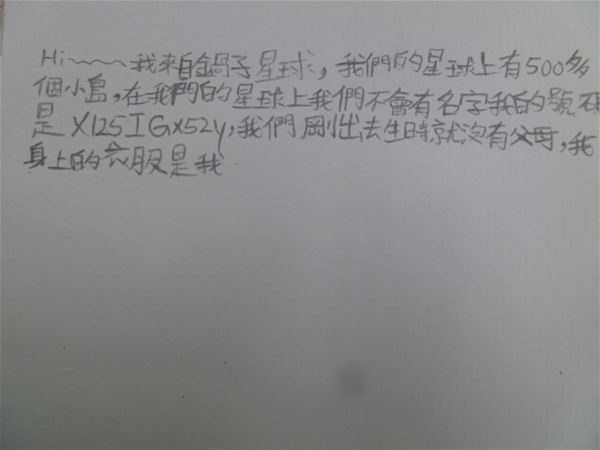 Hi~~~~我來自鍋子星球，我們的星球上有500多
個小島，在我們的星球上我們不會有名字我的號碼
是X125IGX52y，我們剛出去生時就沒有父母，我
身上的衣服是我